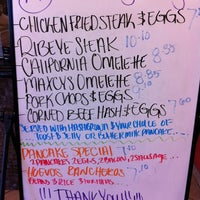 CHICKEN FRIED STEAK & EGGS
RIBEYE STEAK 10.10
CALIFORNIA OMELETTE
MAXCY'S OMELETTE 8.85
PORK CHOPS & EGGS
CORNED BEEF HASH & EGGS 7.60
SERVED WITH HASHBROWN & YOUR CHOICE OF
TOAST & JELLY OR BUTTERMILK PANCAKE
PANCAKE SPECIAL
2 PANCAKES 2 EGGS, 2 BACON, 2 SAUSAGE
HUEVOS RANCHEROS
BEANS & RICE
!!! THANK YOU!!!